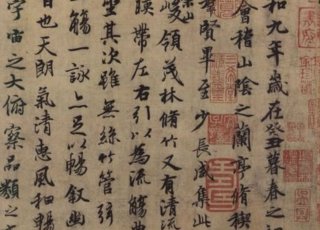 和九年歲在癸丑暮春之初
會稽山陰之蘭亭脩稧
羣賢畢至少長咸集此
崇山
峻領茂林脩竹又有清流
暎帶左右引以為流觴曲
坐其次雖無絲竹管弦
一觴一詠亦足以暢敘幽
日也天朗氣清惠風和暢
宇宙之大俯察品類之